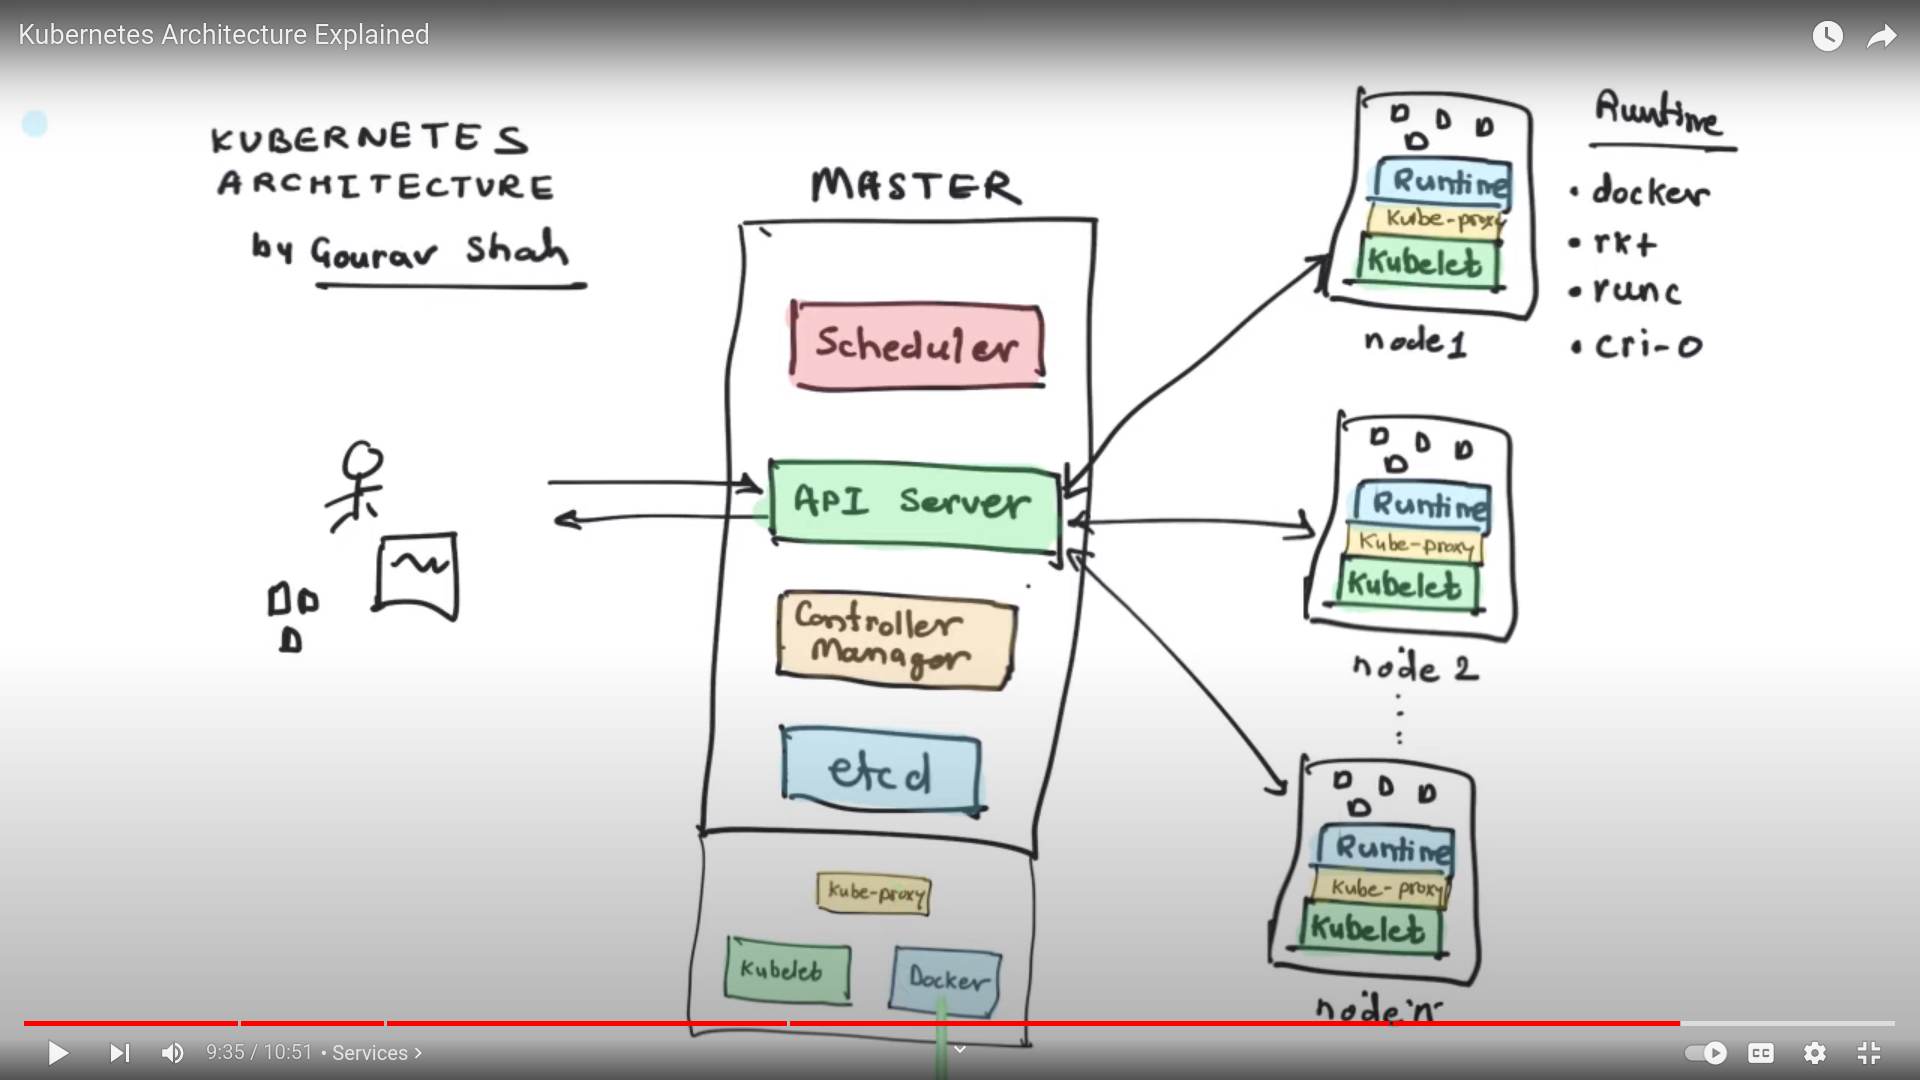 Kubernetes Architecture Explained
KUBERNETES
ARCHITECTURE
by Gourav Shah
MASTER
Scheduler
API Server
Controller
Manager
etcd
Kube-proxy
Kubelet
Docker
Runtime
Kube-proxy
Kubelet
node 1
Runtime
• docker
• rkt
• runc
• cri-o
Runtime
Kube-proxy
Kubelet
node 2
Runtime
Kube-proxy
Kubelet
node 'n'
9:35 / 10:51 • Services
CC